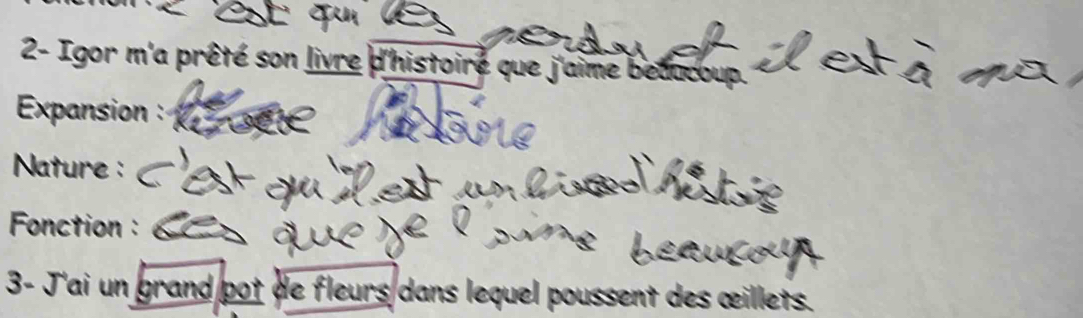 c'est qu les perdu et il est à ma
2- Igor m'a prêté son livre d'histoire que j'aime beaucoup.
Expansion : histoire
Nature : c'est qu'il est un livre d'histoire
Fonction : ces que je l'aime beaucoup
3- J'ai un grand pot de fleurs dans lequel poussent des œillets.